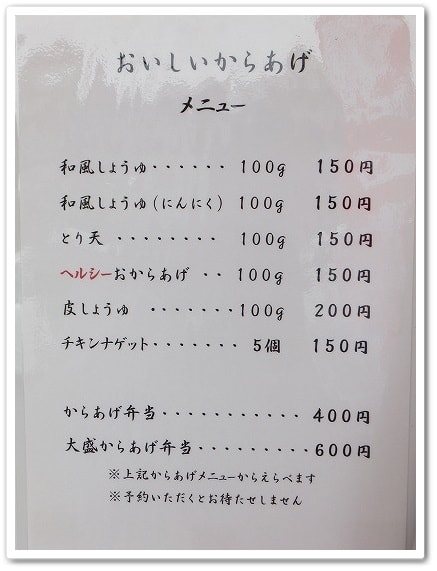 おいしいからあげ
メニュー
和風しょうゆ・・・・・・ 100g 150円
和風しょうゆ(にんにく) 100g 150円
とり天 ・・・・・・・・ 100g 150円
ヘルシーおからあげ ・・ 100g 150円
皮しょうゆ ・・・・・・・100g 200円
チキンナゲット・・・・・・・ 5個 150円
からあげ弁当・・・・・・・・・・・400円
大盛からあげ弁当・・・・・・・・・600円
※上記からあげメニューからえらべます
※予約いただくとお待たせしません